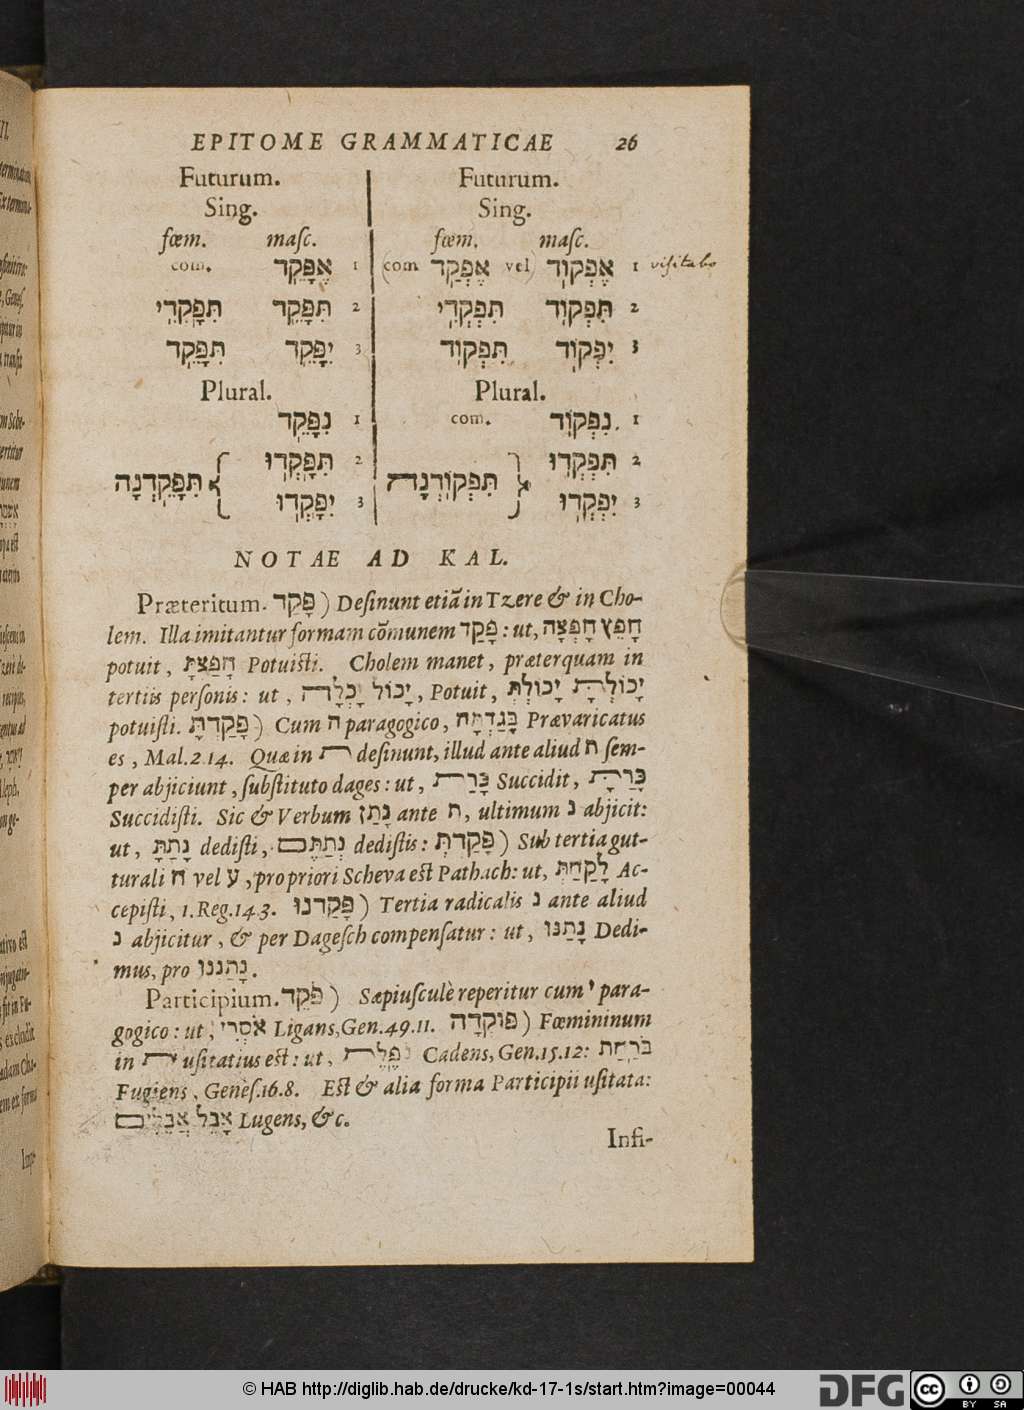 EPITOME GRAMMATICAE 26
Futurum. Futurum.
Sing. Sing.
fœm. masc. fœm. masc.
com. אֶפָּקֵד 1 (com אֶפְקַד vel) אֶפְקוֹד 1 visitabo
תִּפָּקְדִי תִּפָּקֵד 2 תִּפְקְדִי תִּפְקוֹד 2
תִּפָּקֵד יִפָּקֵד 3 תִּפְקוֹד יִפְקוֹד 3
Plural. Plural.
נִפָּקֵד 1 com. נִפְקוֹד 1
תִּפָּקְדוּ 2 תִּפְקְדוּ 2
תִּפָּקַדְנָה { תִּפְקוֹדְנָה }
יִפָּקְדוּ 3 יִפְקְדוּ 3
NOTAE AD KAL.
Præteritum. פָּקַד) Desinunt etiã in Tzere & in Cho-
lem. Illa imitantur formam cõmunem פָּקַד : ut, חָפֵץ חָפְצָה
potuit, חָפַצְתָּ Potuisti. Cholem manet, præterquam in
tertiis personis: ut, יָכוֹל יָכְלָה, Potuit, יָכוֹלְתָּ יָכוֹלְתְּ
potuisti. פָּקַדְתָּ) Cum ה paragogico, בָּגַדְתָּה Prævaricatus
es, Mal. 2. 14. Quæ in ת desinunt, illud ante aliud ת sem-
per abjiciunt, substituto dages: ut, כָּרַת Succidit, כָּרַתָּ
Succidisti. Sic & Verbum נָתַן ante ת, ultimum נ abjicit:
ut, נָתַתָּ dedisti, נְתַתֶּם dedistis: פָּקַדְתְּ) Sub tertia gut-
turali ח vel ע, pro priori Scheva est Pathach: ut, לָקַחַתְּ Ac-
cepisti, 1. Reg. 14. 3. פָּקַדְנוּ) Tertia radicalis נ ante aliud
נ abjicitur, & per Dagesch compensatur: ut, נָתַנּוּ Dedi-
mus, pro נָתַנְנוּ.
Participium. פֹּקֵד) Sæpiusculè reperitur cum י para-
gogico: ut, אֹסְרִי Ligans, Gen. 49. 11. פּוֹקְדָה) Fœmininum
in ת usitatius est: ut, נֹפֶלֶת Cadens, Gen. 15. 12: בֹּרַחַת
Fugiens, Genes. 16. 8. Est & alia forma Participii usitata:
אָבֵל אֲבֵלִים Lugens, &c.
Infi-
© HAB http://diglib.hab.de/drucke/kd-17-1s/start.htm?image=00044
DFG
cc BY SA